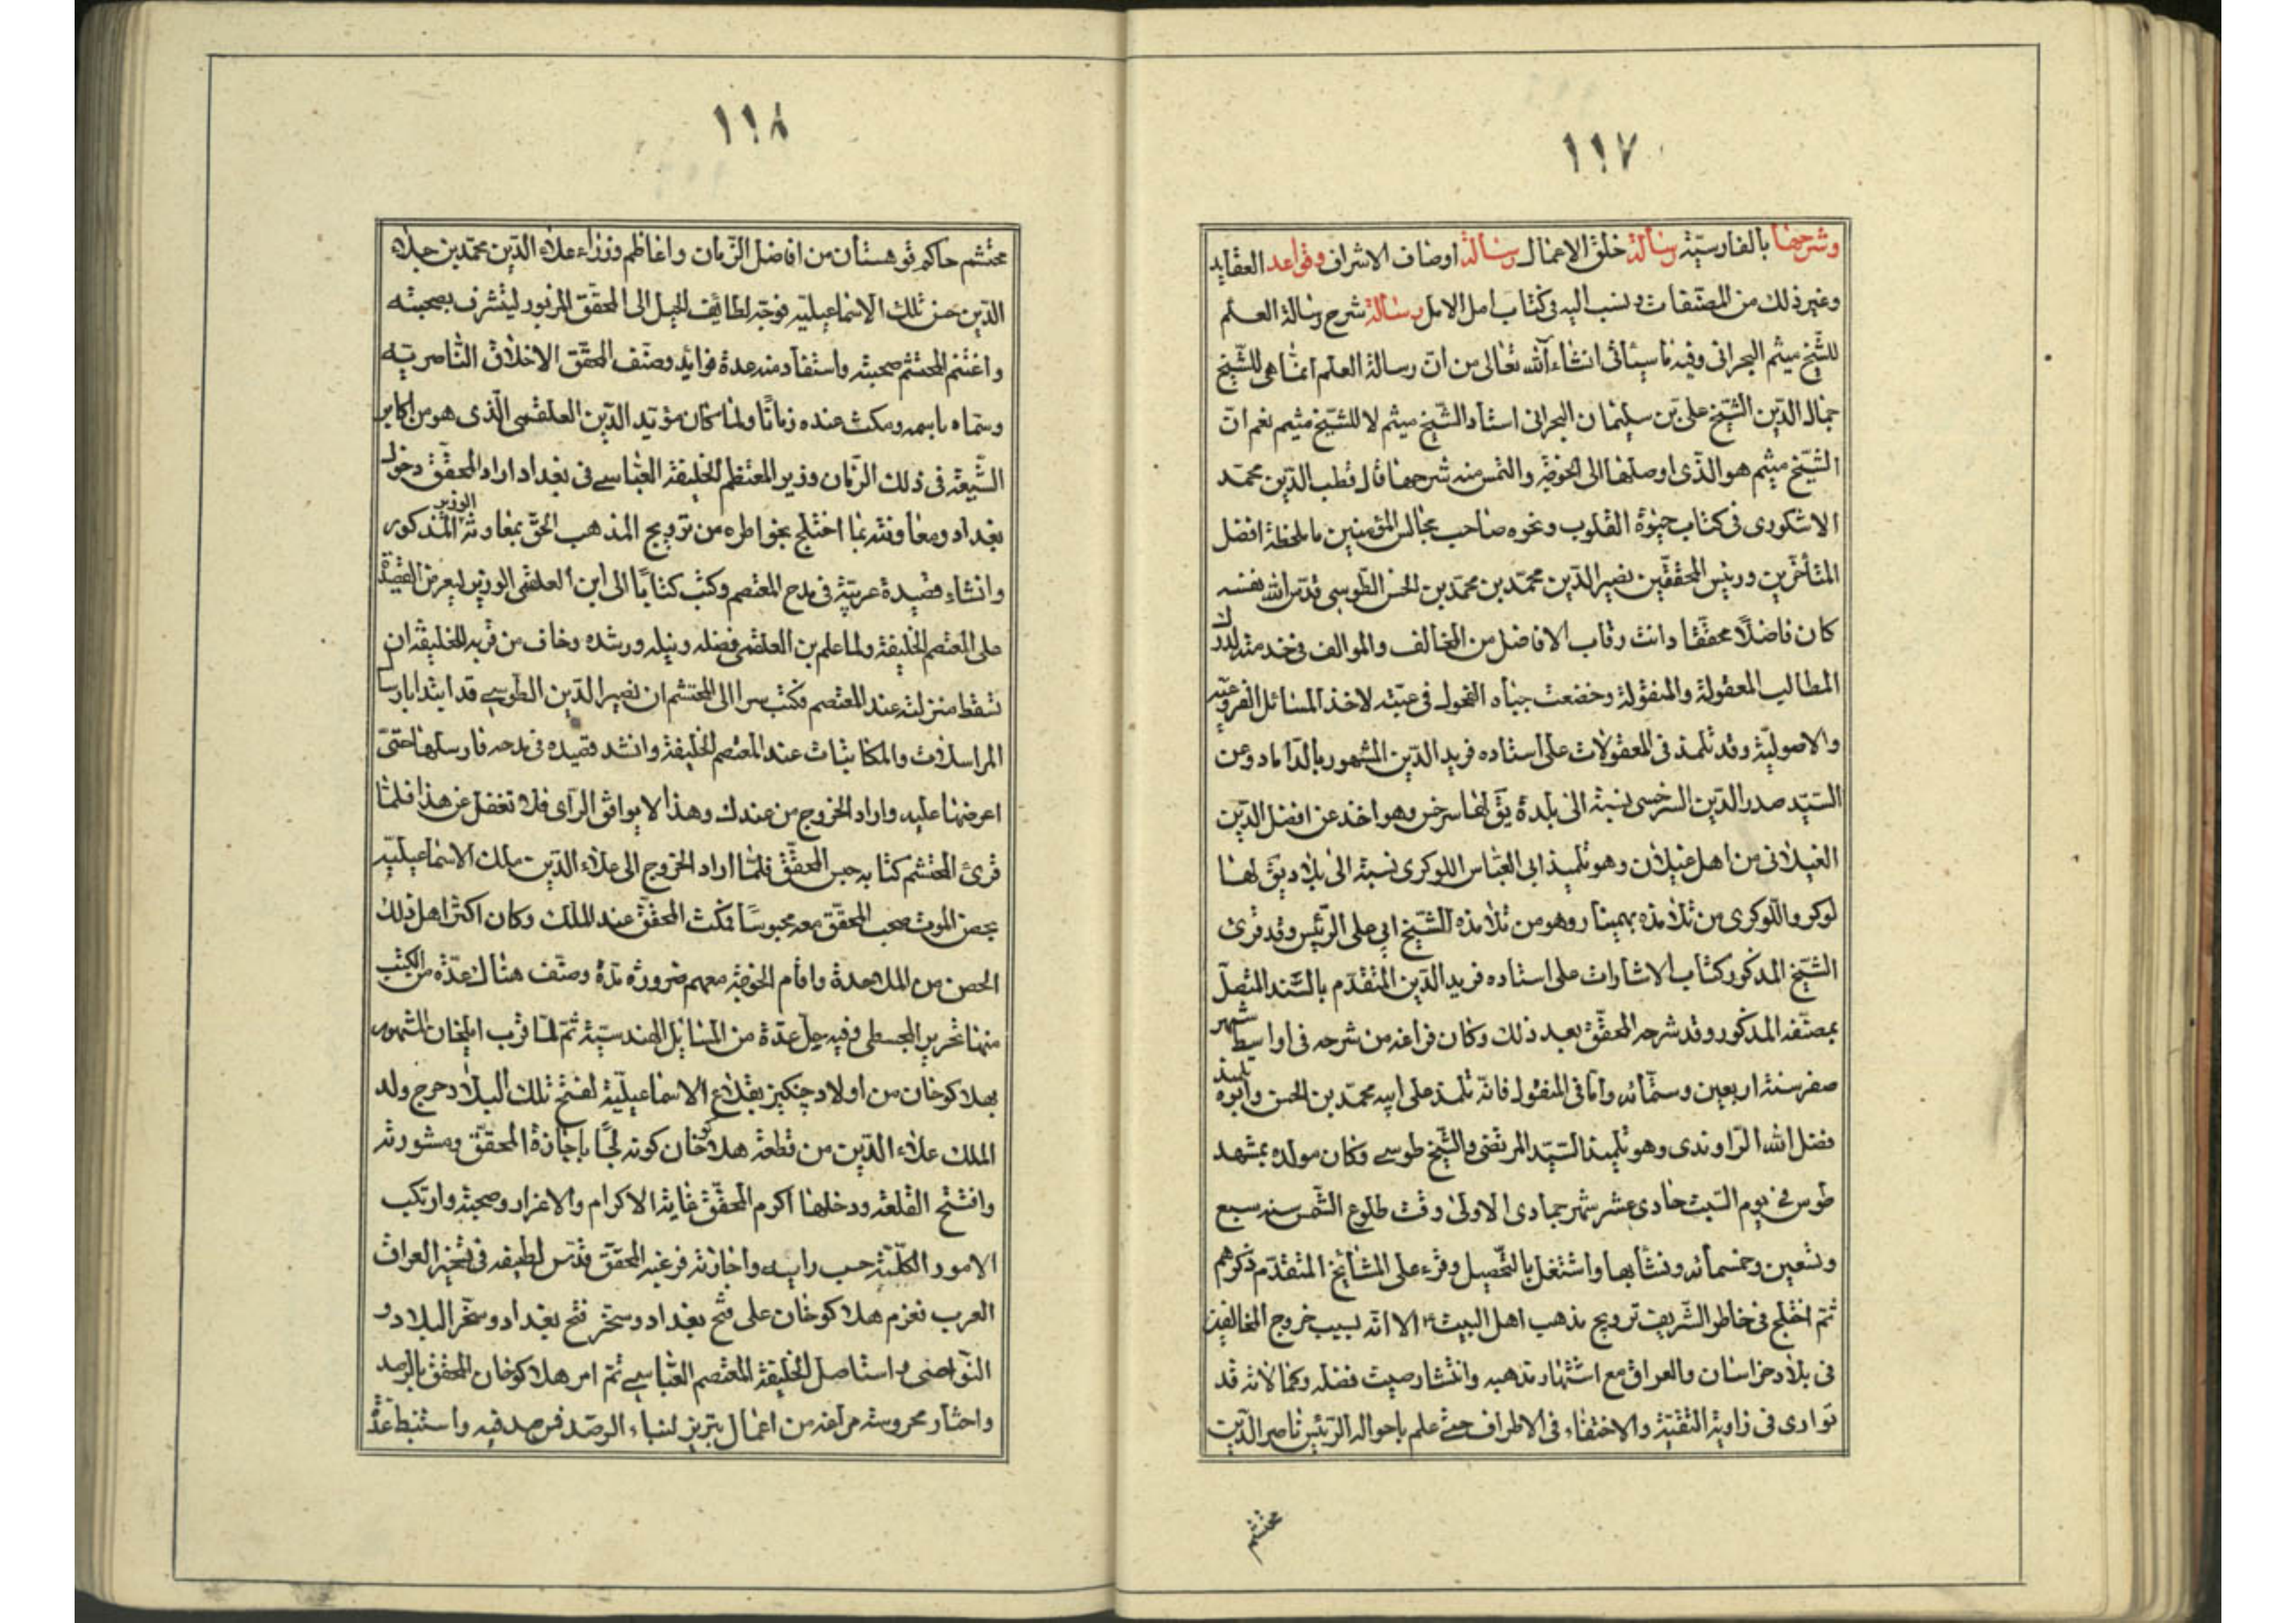 ١١٧
وشرحها بالفارسيّة رسالة خلق الاعمال رسالة اوصاف الاشراف وقواعد العقايد
وغير ذلك من المصنّفات ونسب اليه فى كتاب امل الامل رسالة شرح رسالة العلم
للشّيخ ميثم البحرانى وفيه ما سيئاتى انشاء الله تعالى من انّ رسالة العلم انّما هى للشّيخ
جمال الدّين الشّيخ على بن سليمان البحرانى استاد الشّيخ ميثم لا للشّيخ ميثم نعم انّ
الشّيخ ميثم هو الّذى اوصلها الى الخوجة والتمس منه شرحها قال قطب الدّين محمّد
الاشكورى فى كتاب حيوة القلوب ونحوه صاحب مجالس المؤمنين ما لحظه افضل
المتأخّرين ورئيس المحققّين نصير الدّين محمّد بن محمّد بن الحسن الطّوسى قدّس الله نفسه
كان فاضلًا محققّا دانت رقاب الافاضل من المخالف والموالف فى خدمته لدرك
المطالب المعقولة والمنقولة وخضعت جباه الفحول فى عتبته لاخذ المسائل الفروعيّه
والاصوليّة وقد تلمذ فى المعقولات على استاده فريد الدّين المشهور بالدّاماد وعن
السّيّد صدر الدّين السرخسى نسبة الى بلدة يقّ لها سرخس وهو اخذ عن افضل الدّين
الغيلانى من اهل غيلان وهو تلميذ ابى العبّاس اللوكرى نسبة الى بلاد يقّ لها
لوكر واللّوكرى من تلامذه بهمينار وهو من تلامذه الشّيخ ابى على الرّئيس وقد قرئ
الشّيخ المذكور كتاب الاشارات على استاده فريد الدّين المتقدّم بالسّند المتّصل
بمصنّفه المذكور وقد شرحه المحقّق بعد ذلك وكان فراغه من شرحه فى اواسط شهر
صفر سنة اربعين وستّمائه وامّا فى المنقول فانّه تلمذ على ابيه محمّد بن الحسن وابوه تلميذ
فضل الله الرّاوندى وهو تلميذ السّيّد المرتضى والشّيخ طوسى وكان مولده بمشهد
طوس فى يوم السّبت حادى عشر شهر جمادى الاولى وقت طلوع الشّمس سنه سبع
وتسعين وخمسمائه ونشأ بها واشتغل بالتّحصيل وقرء على المشايخ المتقدّم ذكرهم
ثمّ اختلج فى خاطر الشّريف ترويج مذهب اهل البيت الا انّه بسبب خروج المخالفين
فى بلاد خراسان والعراق مع اشتهار مذهبه وانتشار صيت فضله وكمالاته قد
توارى فى زاوية التّقيّة والاختفاء فى الاطراف حتّى علم باحواله الرّئيس ناصر الدّين
محتشم
١١٨
محتشم حاكم قوهستان من افاضل الزّمان واعاظم وزراء علاء الدّين محمّد بن جلاء
الدّين حسن ملك الاسماعيليه فوجّه لطائف الحيل الى المحقّق المزبور ليتشرف بصحبته
واغتنم المحتشم صحبته واستفاد منه عدة فوايد وصنّف المحقّق الاخلاق النّاصريّه
وسمّاه باسمه ومكث عنده زمانًا ولمّا كان مؤيّد الدّين العلقمى الّذى هو من اكابر
الشّيعة فى ذلك الزّمان وزير المعتظم الخليفة العبّاسى فى بغداد اراد المحقّق دخول
بغداد ومعاونته بما اختلج بخواطره من ترويج المذهب الحقّ بمعاونة الوزير المذكور
وانشاء قصيدة عربيّة فى مدح المعتصم وكتب كتابًا الى ابن العلقمى الوزير ليعرض القصيدة
على المعتصم الخليفة ولما علم بن العلقمى فضله ونبله ورشده وخاف من قربه للخليفة ان
تسقط منزلته عند المعتصم فكتب سرا الى المحتشم ان نصير الدّين الطوسى قد ابتدا بارسا
المراسلات والمكاتبات عند المعتصم الخليفة وانشد قصيده فى مدحه فارسلها حتّى
اعرضها عليه واراد الخروج من عندك وهذا لا يوافق الراى فلا تغفل عن هذا فلمّا
قرئ المحتشم كتابه حبس المحقّق فلمّا اراد الخروج الى علاء الدّين ملك الاسماعيليّه
بحصن الموت صحب المحقّق معه محبوسًا فمكث المحقّق عند الملك وكان اكثر اهل ذلك
الحصن من الملاحدة واقام الخوجة معهم ضرورة مدة وصنّف هناك عدّه من الكتب
منها تحرير المجسطى وفيه حل عدّة من المسائل الهندسيّة ثمّ لمّا قرب ايلخان المشهور
بهلاكوخان من اولاد چنكيز بقلاع الاسماعيليّة لفتح تلك البلاد خرج ولد
الملك علاء الدّين من قطعة هلاكوخان كونه لجّا باجازة المحقّق ومشورته
وافتتح القلعة ودخلها اكرم المحقّق غاية الاكرام والاعزاز وصحبة وارتكب
الامور الكلّيّة حسب رايه واجازته فرغبه المحقّق قدّس لطيفه فى تسخير العراق
العرب فعزم هلاكوخان على فتح بغداد وسخر فتح بغداد وسخّر البلاد و
النّواحى واستاصل الخليفة المعتصم العبّاسى ثمّ امر هلاكوخان المحقق بالرصد
واختار محروسة مراغه من اعمال تبريز لبناء الرصّد فرصد فيه واستنبط عدّة